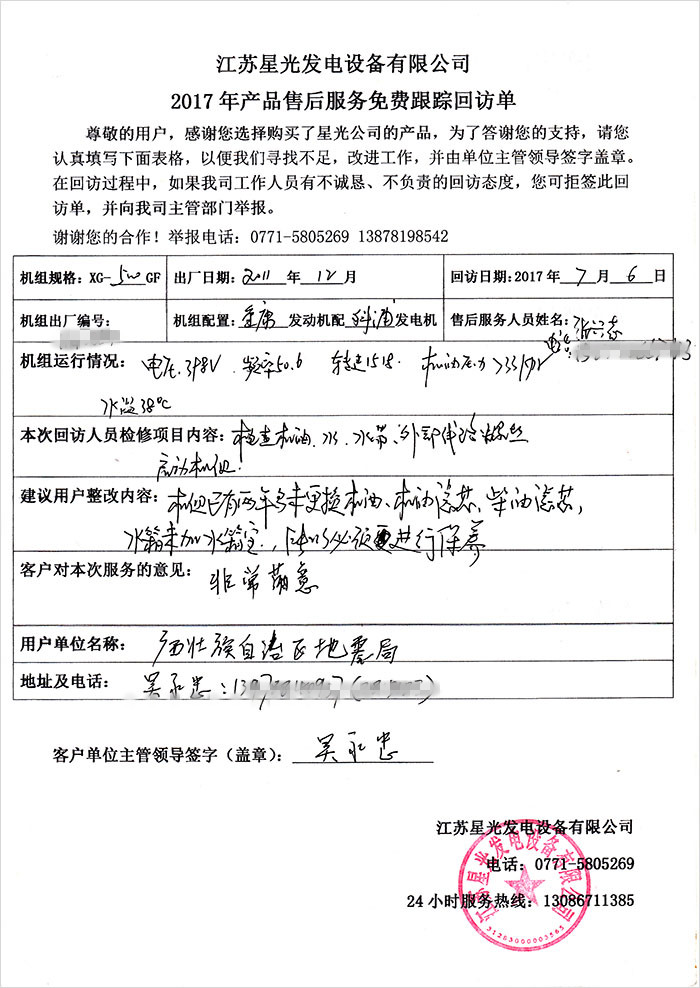 江苏星光发电设备有限公司
2017年产品售后服务免费跟踪回访单
尊敬的用户，感谢您选择购买了星光公司的产品，为了答谢您的支持，请您
认真填写下面表格，以便我们寻找不足，改进工作，并由单位主管领导签字盖章。
在回访过程中，如果我司工作人员有不诚恳、不负责的回访态度，您可拒签此回
访单，并向我司主管部门举报。
谢谢您的合作！举报电话：0771-5805269 13878198542
机组规格：XG-500GF 出厂日期：2011 年 12 月 回访日期：2017年 7 月 6 日
机组出厂编号： 机组配置：重庆 发动机配 科浦 发电机 售后服务人员姓名：
电话：
机组运行情况：电压398V 频率50.6 转速1518 机油压力
水温38℃
本次回访人员检修项目内容：检查机油、水、水带、外部
启动机组.
建议用户整改内容：机组已有两年多未更换机油、机油滤芯、柴油滤芯，
水箱未加水箱宝，所以必须要进行保养
客户对本次服务的意见：非常满意
用户单位名称：广西壮族自治区地震局
地址及电话：吴永忠：
客户单位主管领导签字（盖章）：吴永忠
江苏星光发电设备有限公司
电话：0771-5805269
24小时服务热线：13086711385
江苏星光发电设备有限公司
31283000003565